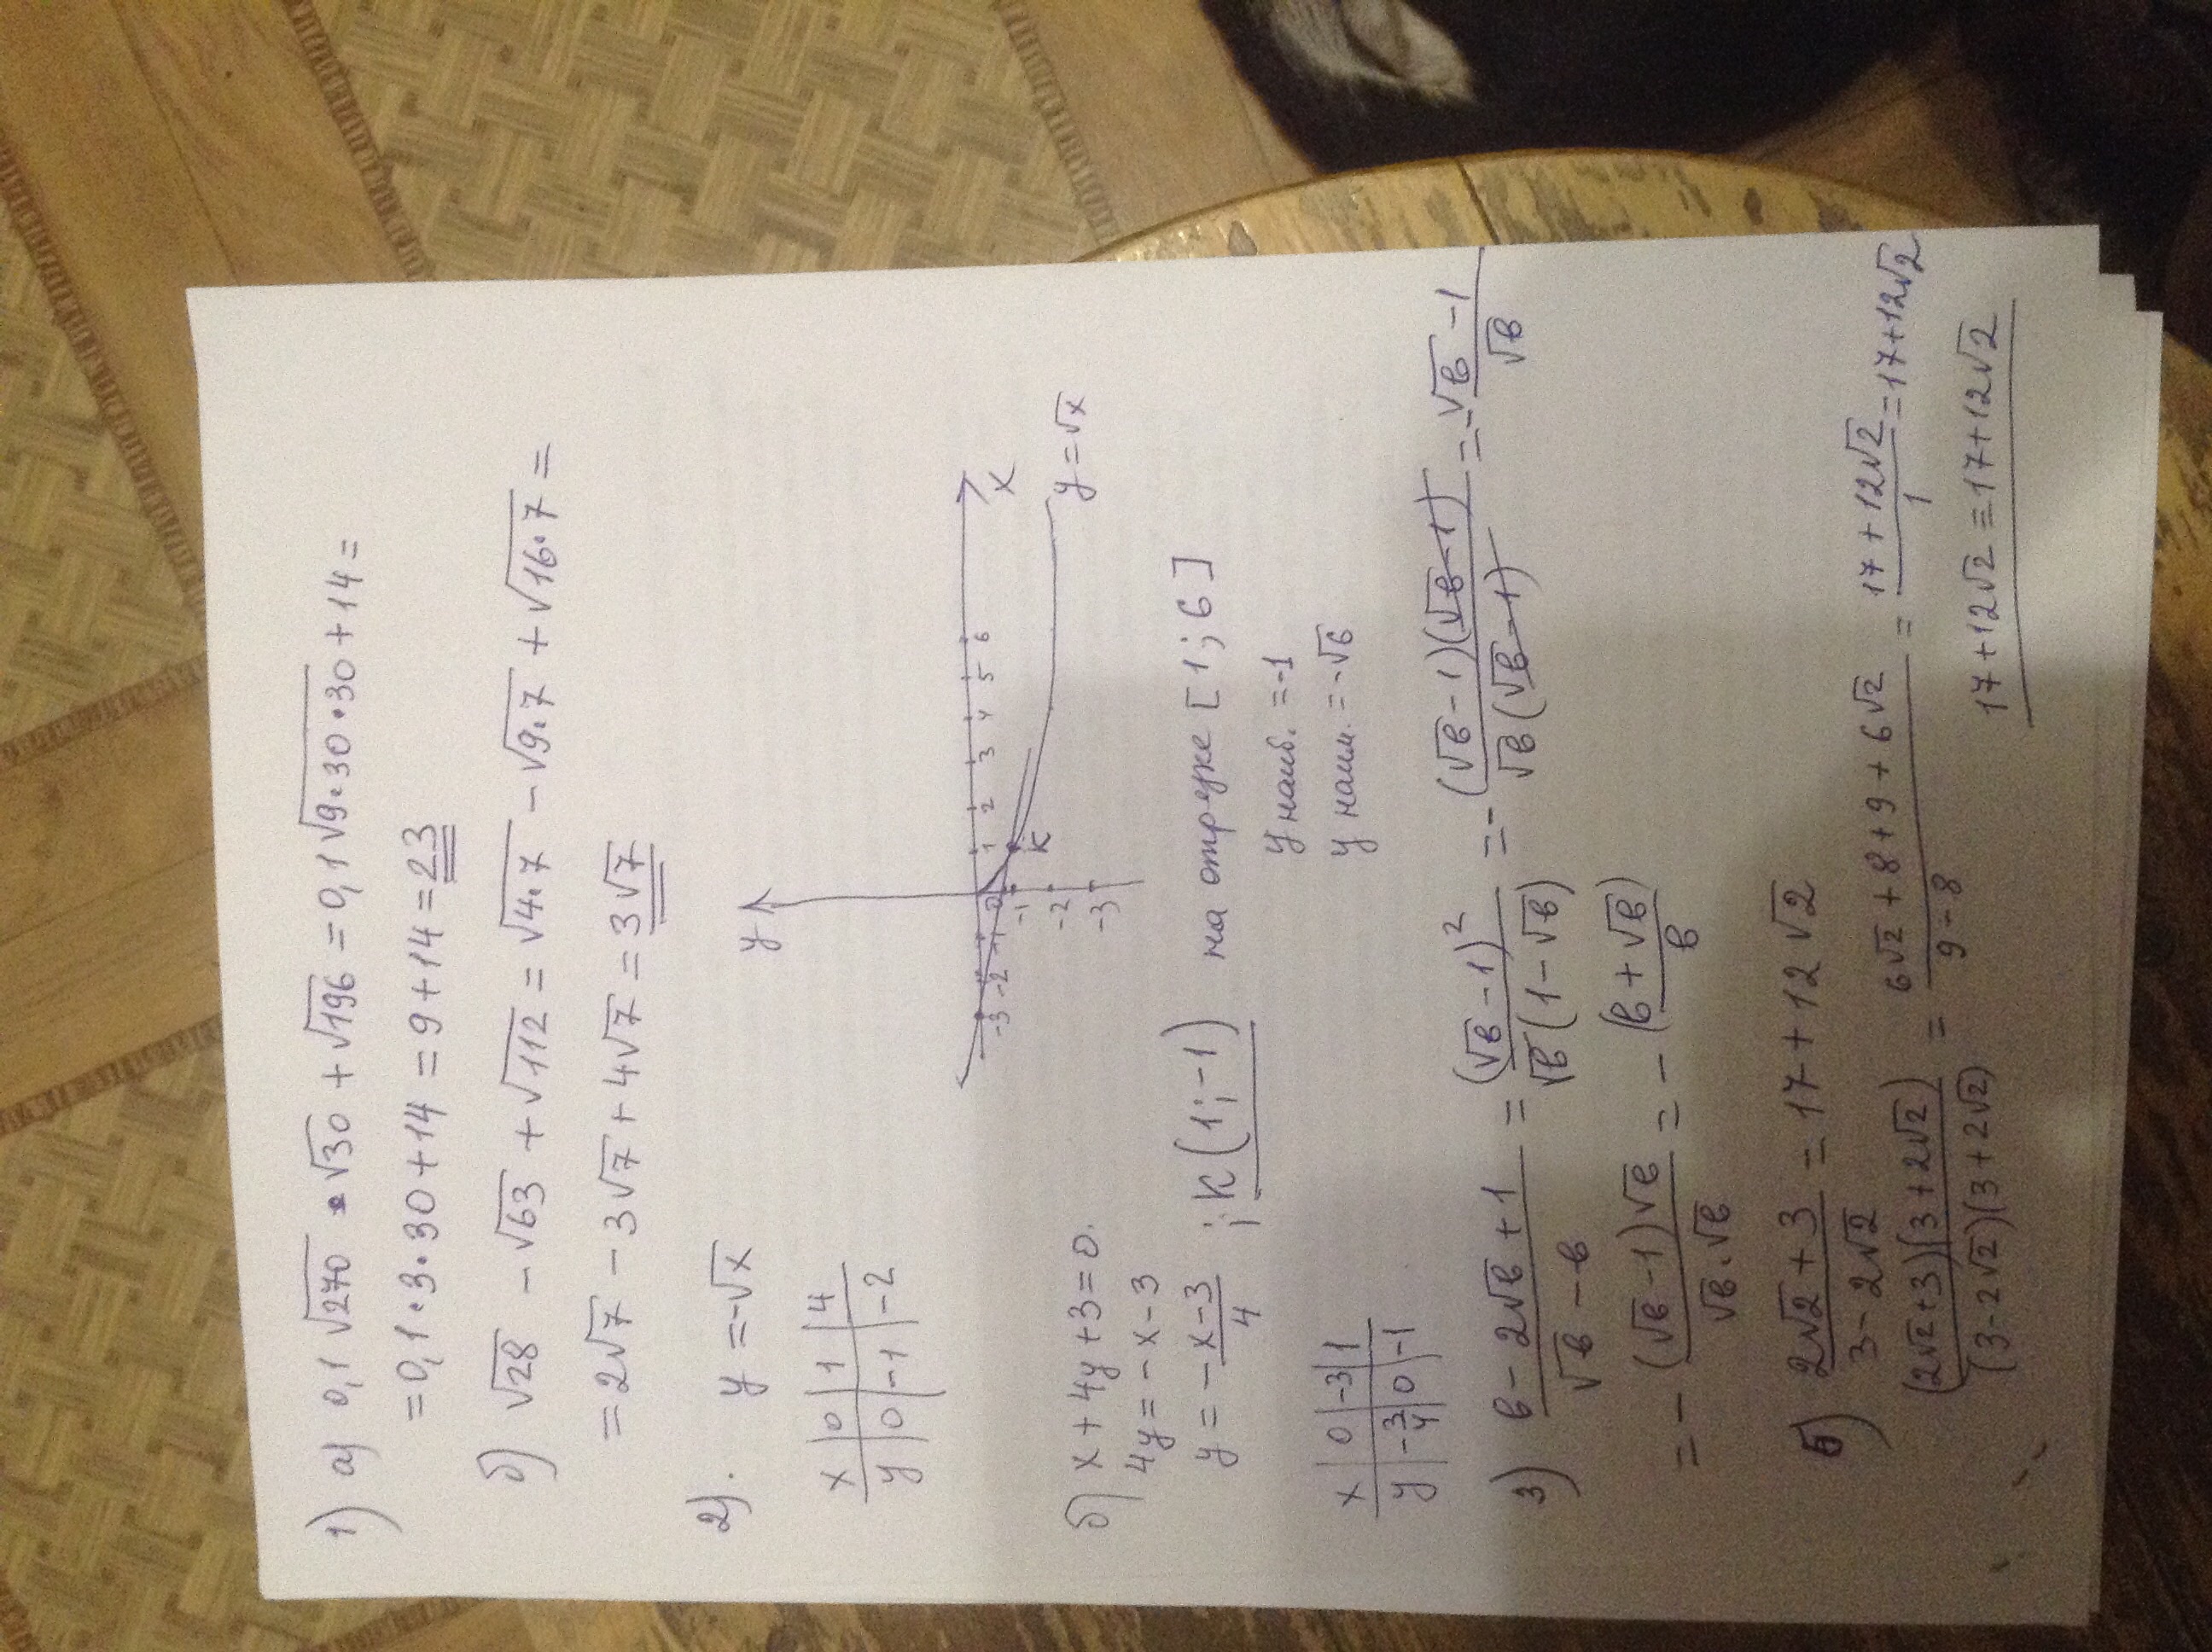 1) а) 0,1√270 · √30 + √196 = 0,1√9·30·30 + 14 =
= 0,1·3·30+14 = 9+14 = 23
б) √28 - √63 + √112 = √4·7 - √9·7 + √16·7 =
= 2√7 - 3√7 + 4√7 = 3√7
2). y = -√x
x | 0 | 1 | 4
y | 0 | -1 | -2
y
-3 -2 -1 0 1 2 3 4 5 6 x
-1 K
-2
-3
y = √x
б) x + 4y + 3 = 0.
4y = -x - 3
y = -x-3/4 ; K(1;-1)
на отрезке [1; 6]
y наиб. = -1
y наим. = -√6
x | 0 | -3 | 1
y | -3/4 | 0 | -1
3) (в - 2√в + 1)/(√в - в) = (√в - 1)²/(√в(1-√в)) = - (√в-1)(√в-1)/(√в(√в-1)) = - (√в - 1)/√в
= - (√в-1)√в/(√в·√в) = - (в+√в)/в
5) (2√2+3)/(3-2√2) = 17+12√2
(2√2+3)(3+2√2)/((3-2√2)(3+2√2)) = (6√2+8+9+6√2)/(9-8) = (17+12√2)/1 = 17+12√2
17+12√2 = 17+12√2